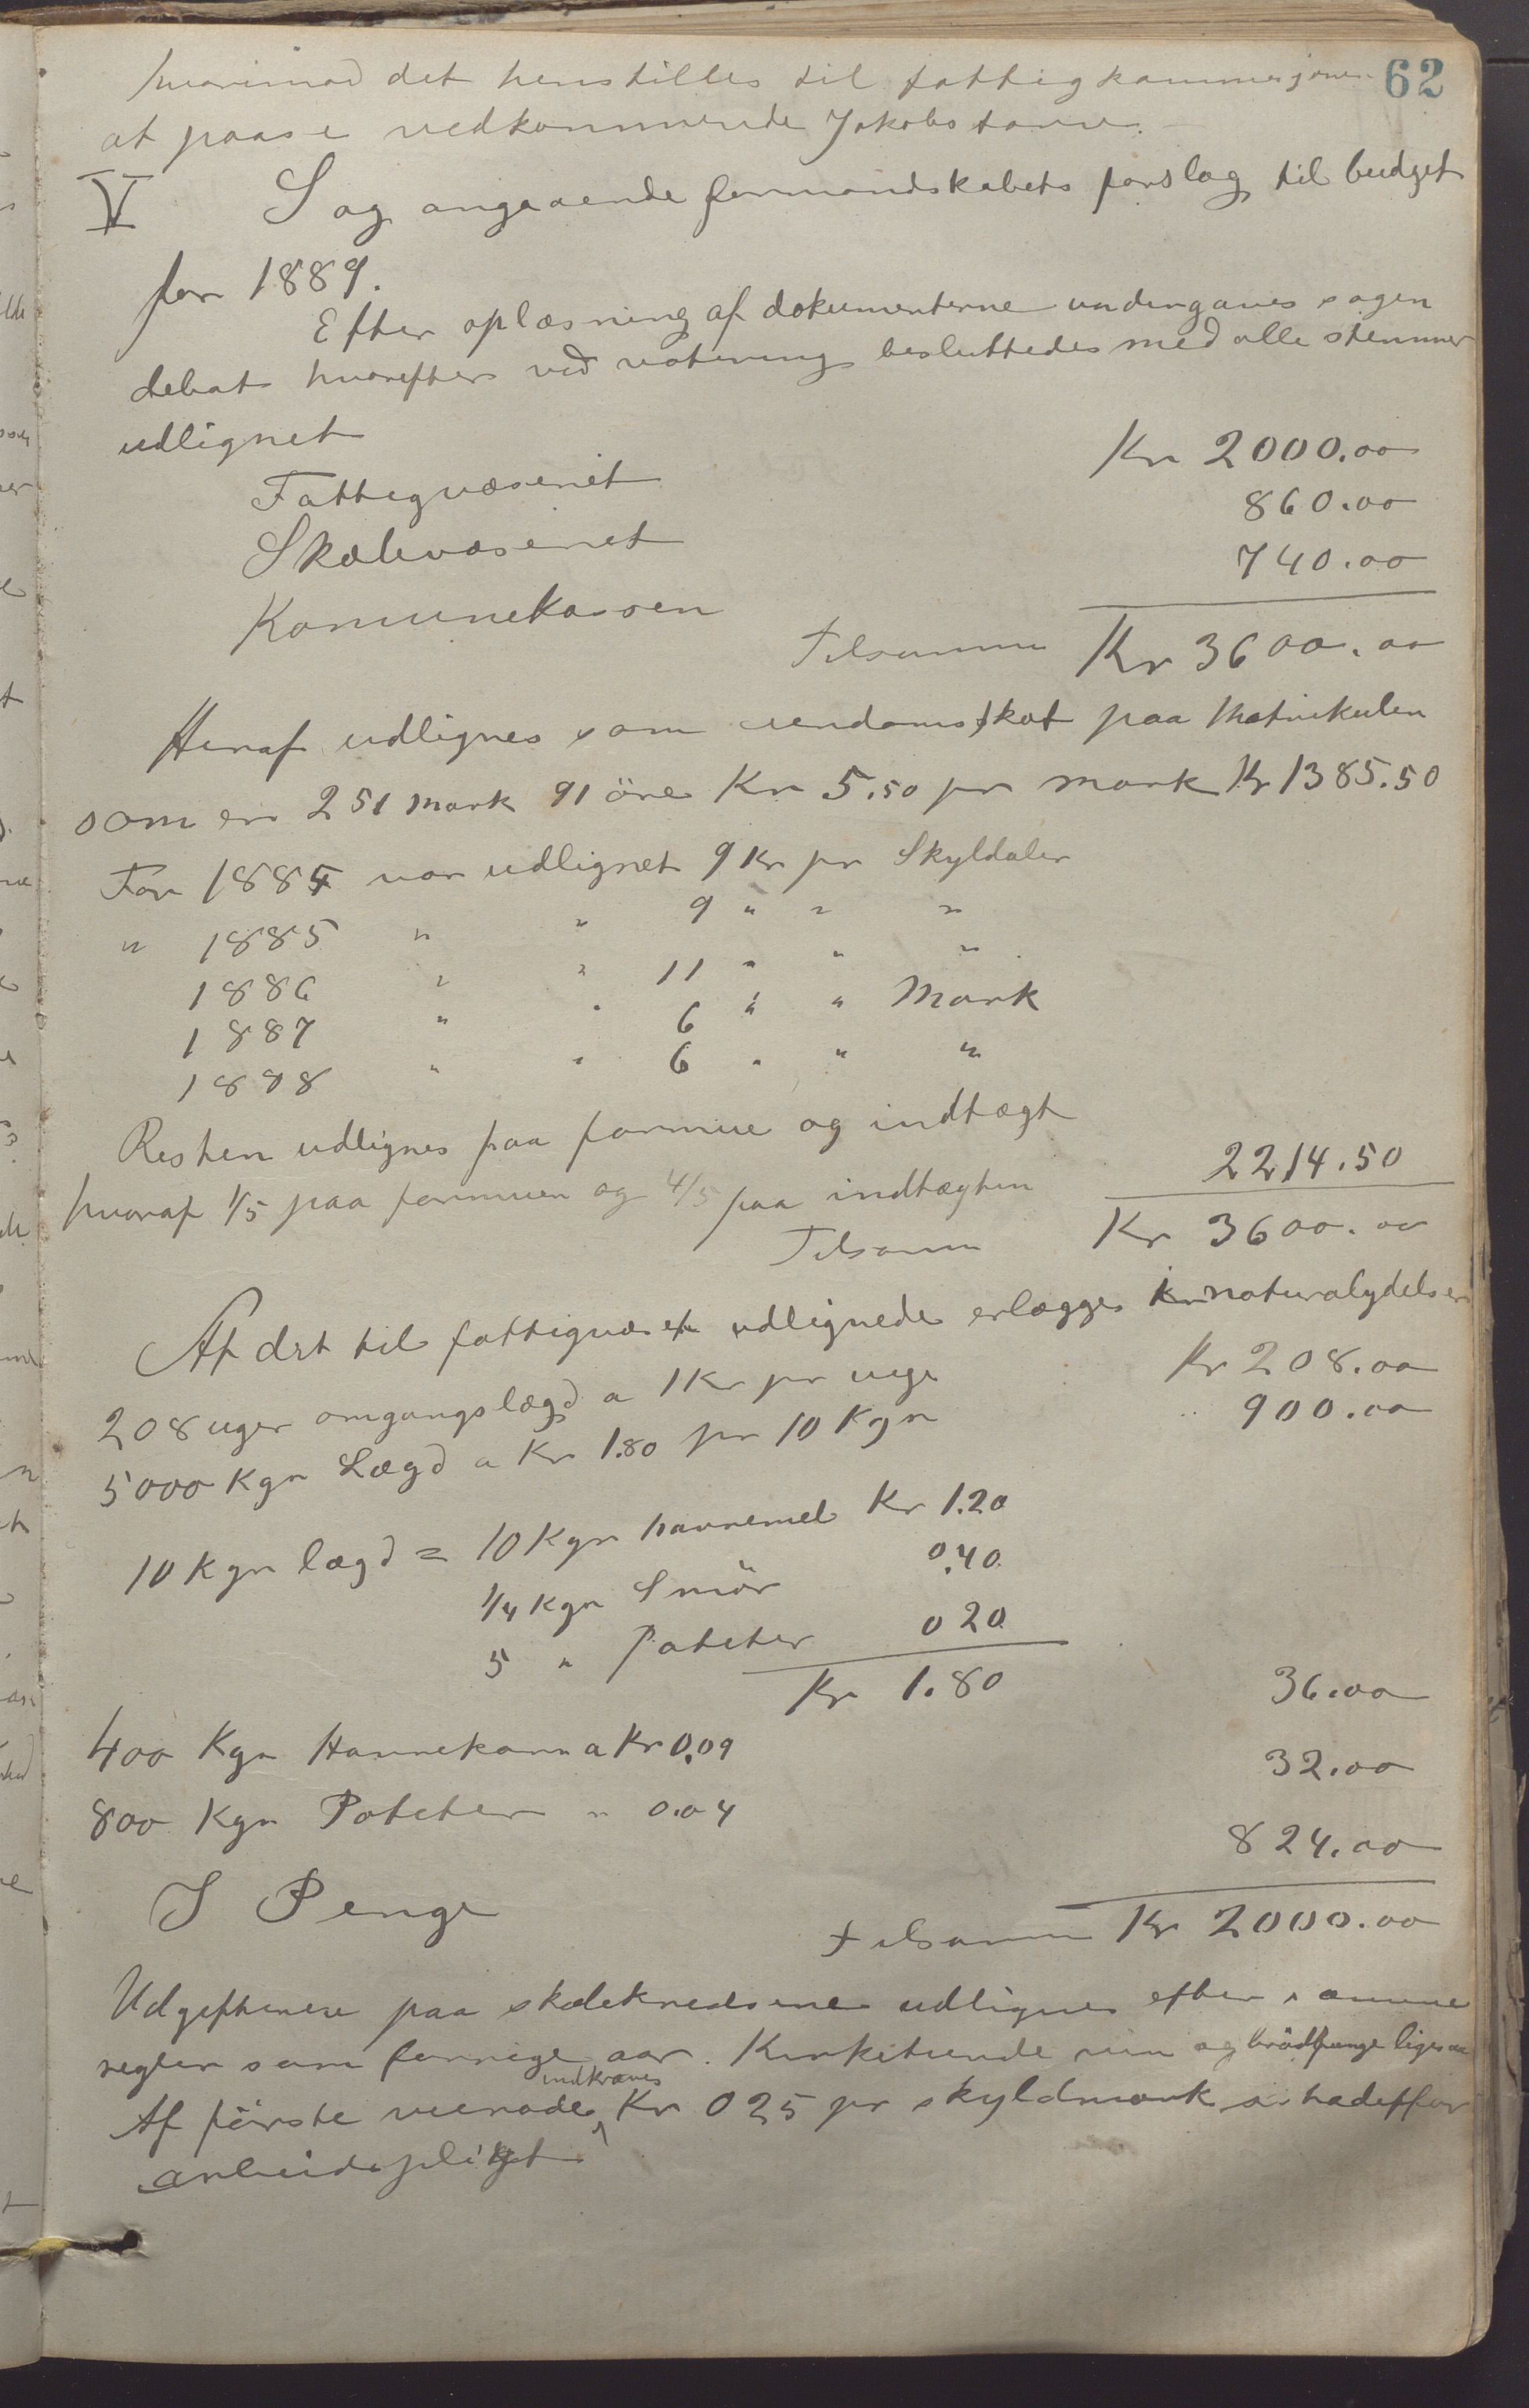 62
hvorimod det henstilles til fattigkommisjonen
at paase vedkommende Jakobs tarv.
V Sag angaaende formandskabets forslag til budget
for 1889.
Efter oplæsning af dokumenterne undergaves sagen
debat hvorefter ved votering besluttedes med alle stemmer
udlignet
Fattigvæsenet Kr 2000.00
Skolevæsenet 860.00
Komunekassen 740.00
Tilsammen Kr 3600.00
Heraf udlignes som eiendomsskat paa Matrikulen
som er 251 Mark 91 öre Kr 5.50 pr mark Kr 1385.50
For 1884 var udlignet 9 Kr pr Skyldaler
" 1885 " " 9 " " "
1886 " " 11 " " "
1887 " " 6 " " Mark
1888 " " 6 " " "
Resten udlignes paa formue og indtægt
hvoraf 1/5 paa formuen og 4/5 paa indtægten 2214.50
Tilsamm Kr 3600.00
Af det til fattigvæsen udlignede erlægges i naturalydelser
208 uger omgangslægd a 1 Kr pr uge Kr 208.00
5000 Kgr Lægd a Kr 1.80 pr 10 Kgr " 900.00
10 Kgr lægd = 10 Kgr havremel Kr 1.20
1/4 Kgr Smör 0.40
5 " Poteter 0 20
Kr 1.80
400 Kgr Havrekorn a Kr 0.09 36.00
800 Kgr Poteter " 0.04 32.00
I Penge 824.00
tilsamm Kr 2000.00
Udgifterne paa skolekredsene udlignes efter samme
regler som forrige aar. Kirketiende vin og brödpenge ligesaa
Af förste veirode indkræves Kr 0 25 pr skyldmark istedetfor
arbeidspligt